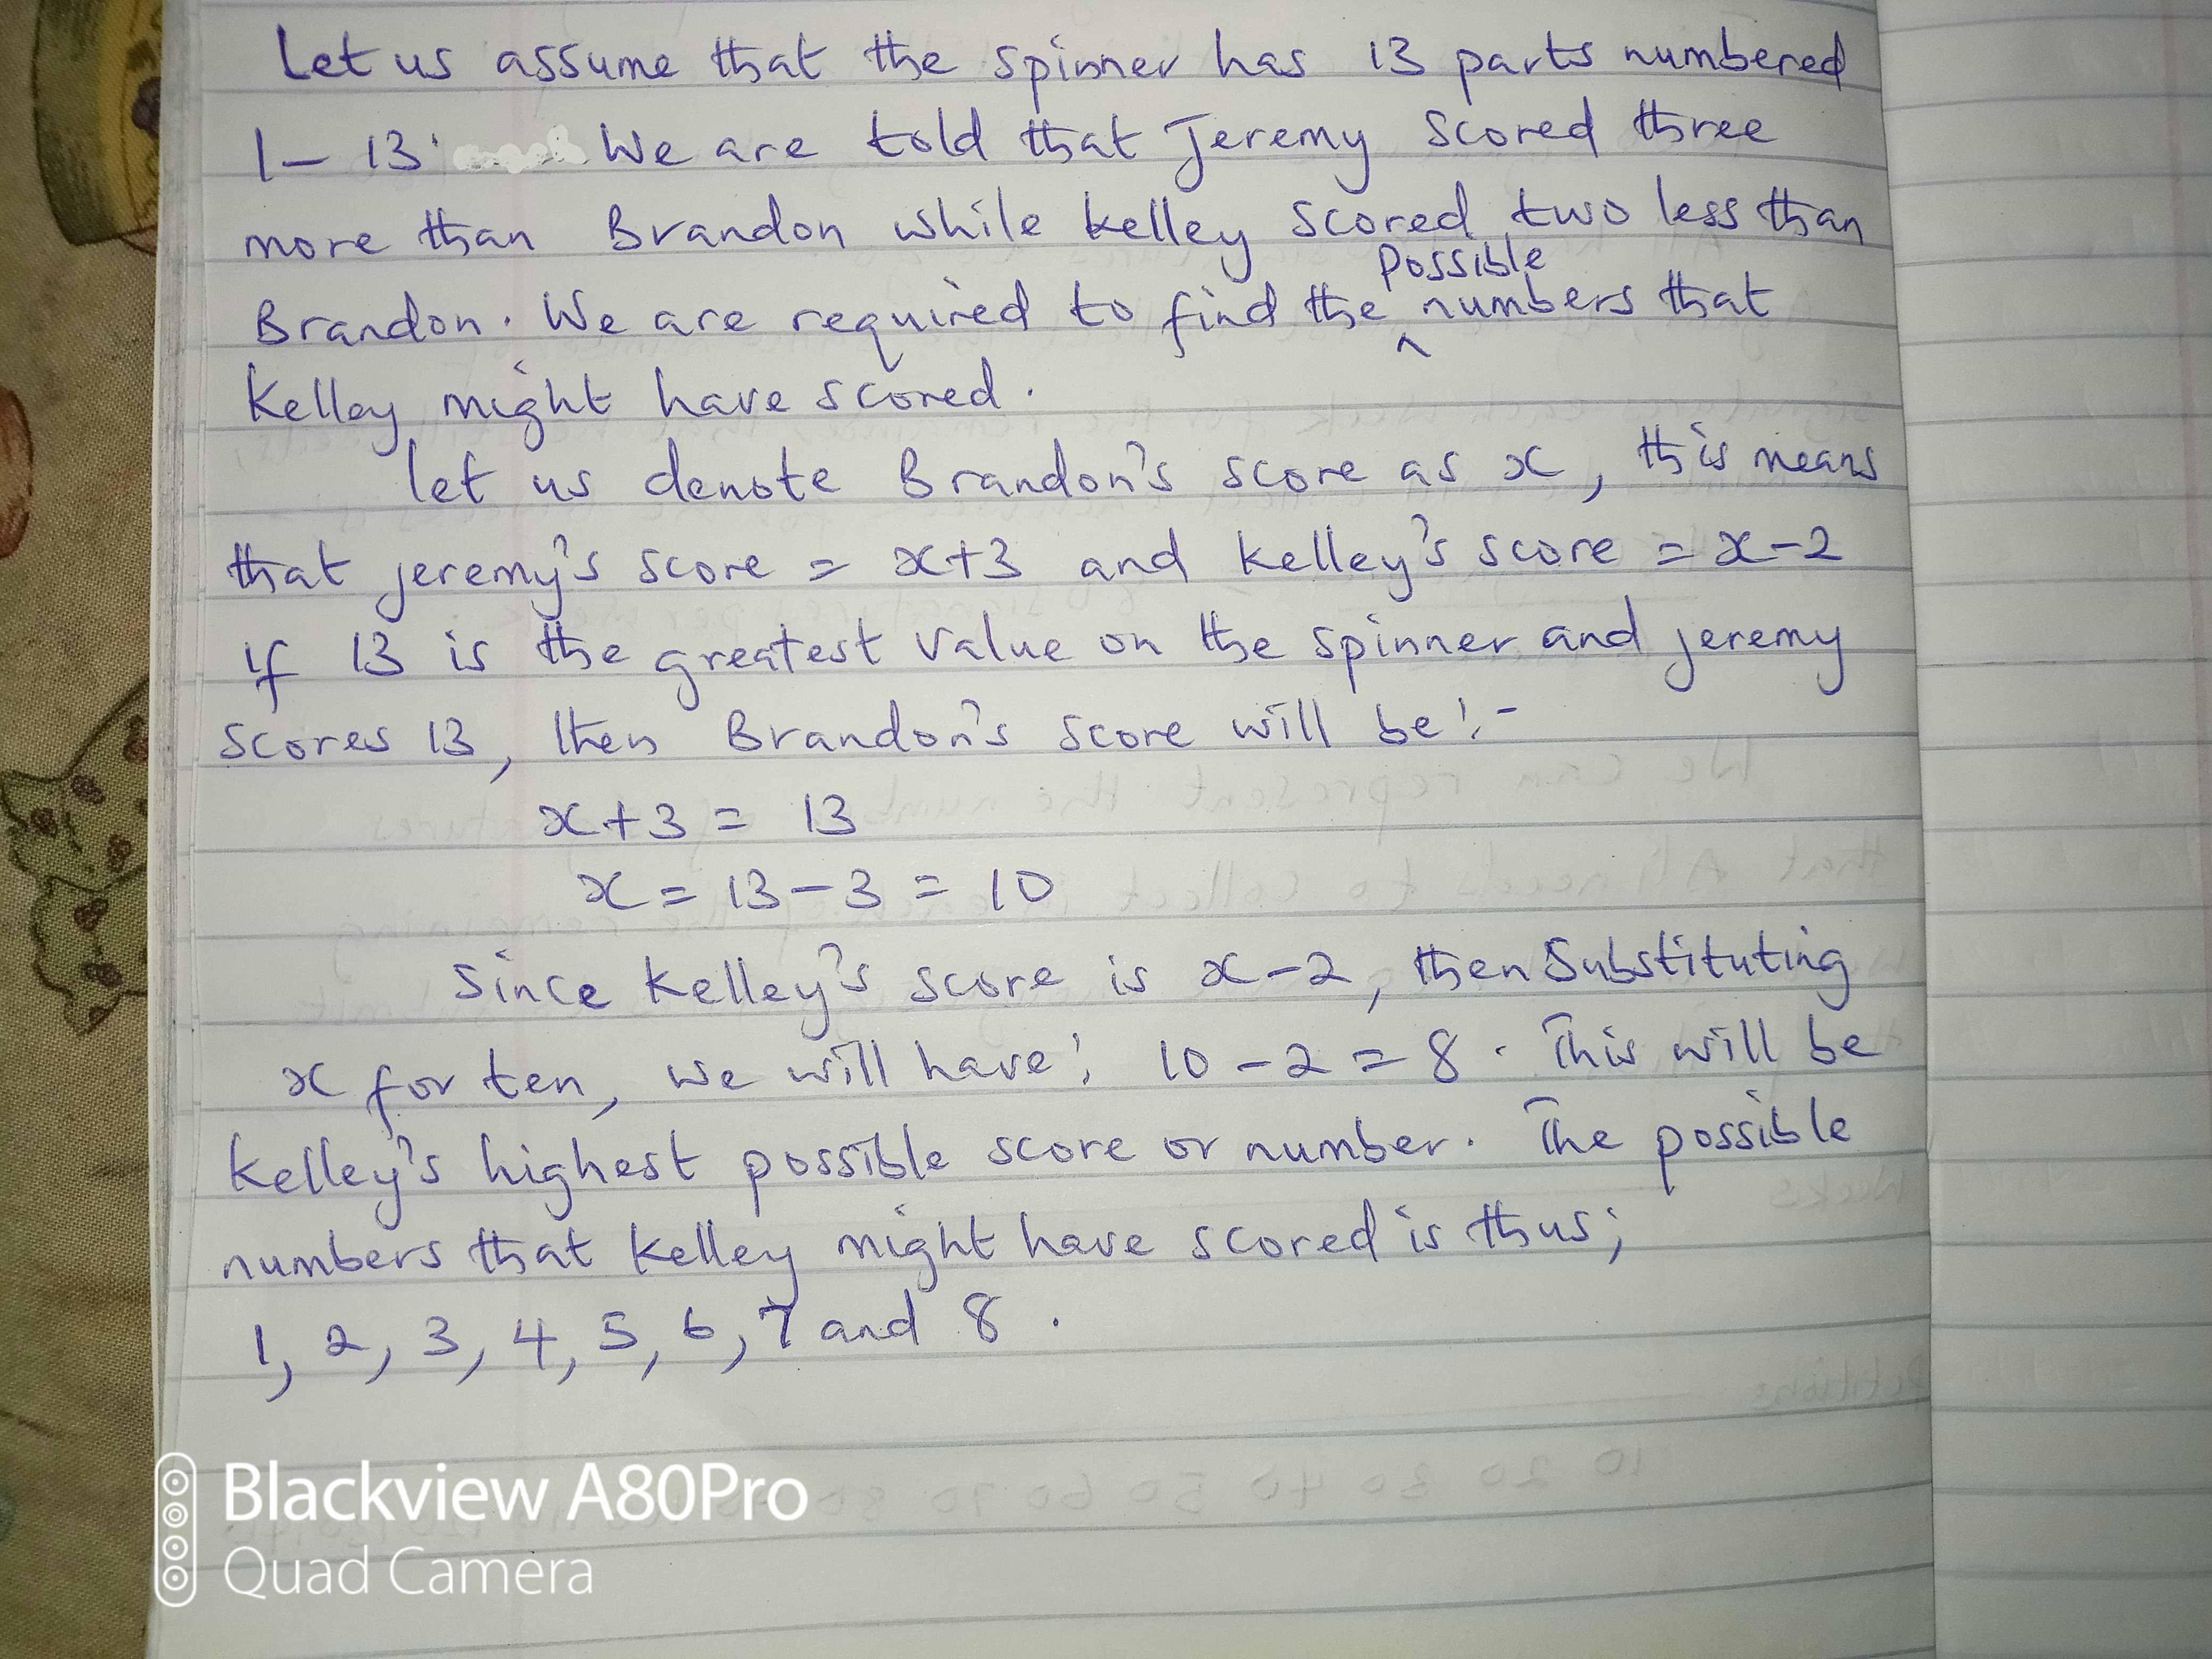 Let us assume that the spinner has 13 parts numbered
1 - 13. We are told that Jeremy scored three
more than Brandon while Kelley scored two less than
Brandon. We are required to find the possible numbers that
Kelley might have scored.
let us denote Brandon's score as x, this means
that jeremy's score = x+3 and Kelley's score = x-2
if 13 is the greatest value on the spinner and jeremy
scores 13, then Brandon's score will be:-
x+3 = 13
x = 13-3 = 10
Since Kelley's score is x-2, then Substituting
x for ten, we will have; 10-2 = 8. This will be
Kelley's highest possible score or number. The possible
numbers that Kelley might have scored is thus;
1, 2, 3, 4, 5, 6, 7 and 8.
Blackview A80Pro
Quad Camera